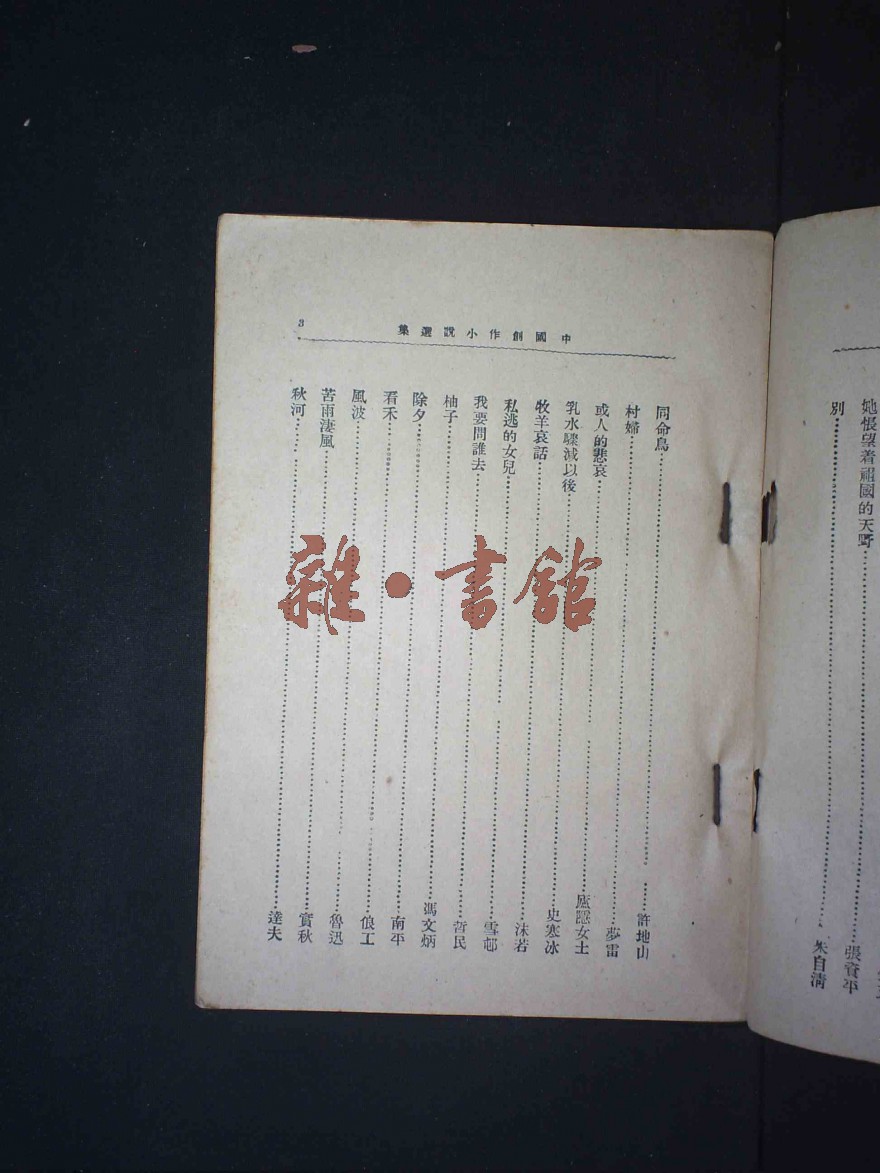 她悵望着祖國的天野……張資平
別……朱自清
中國創作小說選集
3
同命鳥……許地山
村婦……夢雷
或人的悲哀……廬隱女士
乳水驟減以後……史寒冰
牧羊哀話……沫若
私逃的女兒……雪邨
我要問誰去……哲民
柚子……馮文炳
除夕……南平
看禾……俍工
風波……魯迅
苦雨淒風……實秋
秋河……達夫
雜·書館